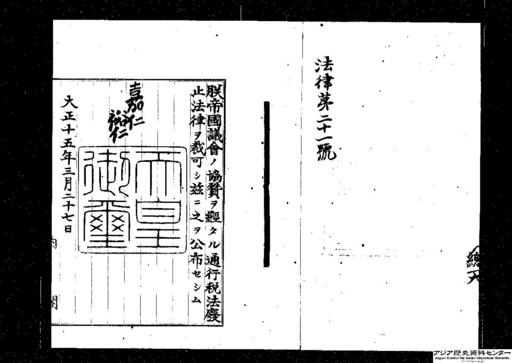 法律第二十一號
朕帝國議會ノ協贊ヲ經タル通行税法廢
止法律ヲ裁可シ茲ニ之ヲ公布セシム
嘉仁
裕仁
天皇
御璽
大正十五年三月二十七日
内閣
アジア歴史資料センター
Japan Center for Asian Historical Records